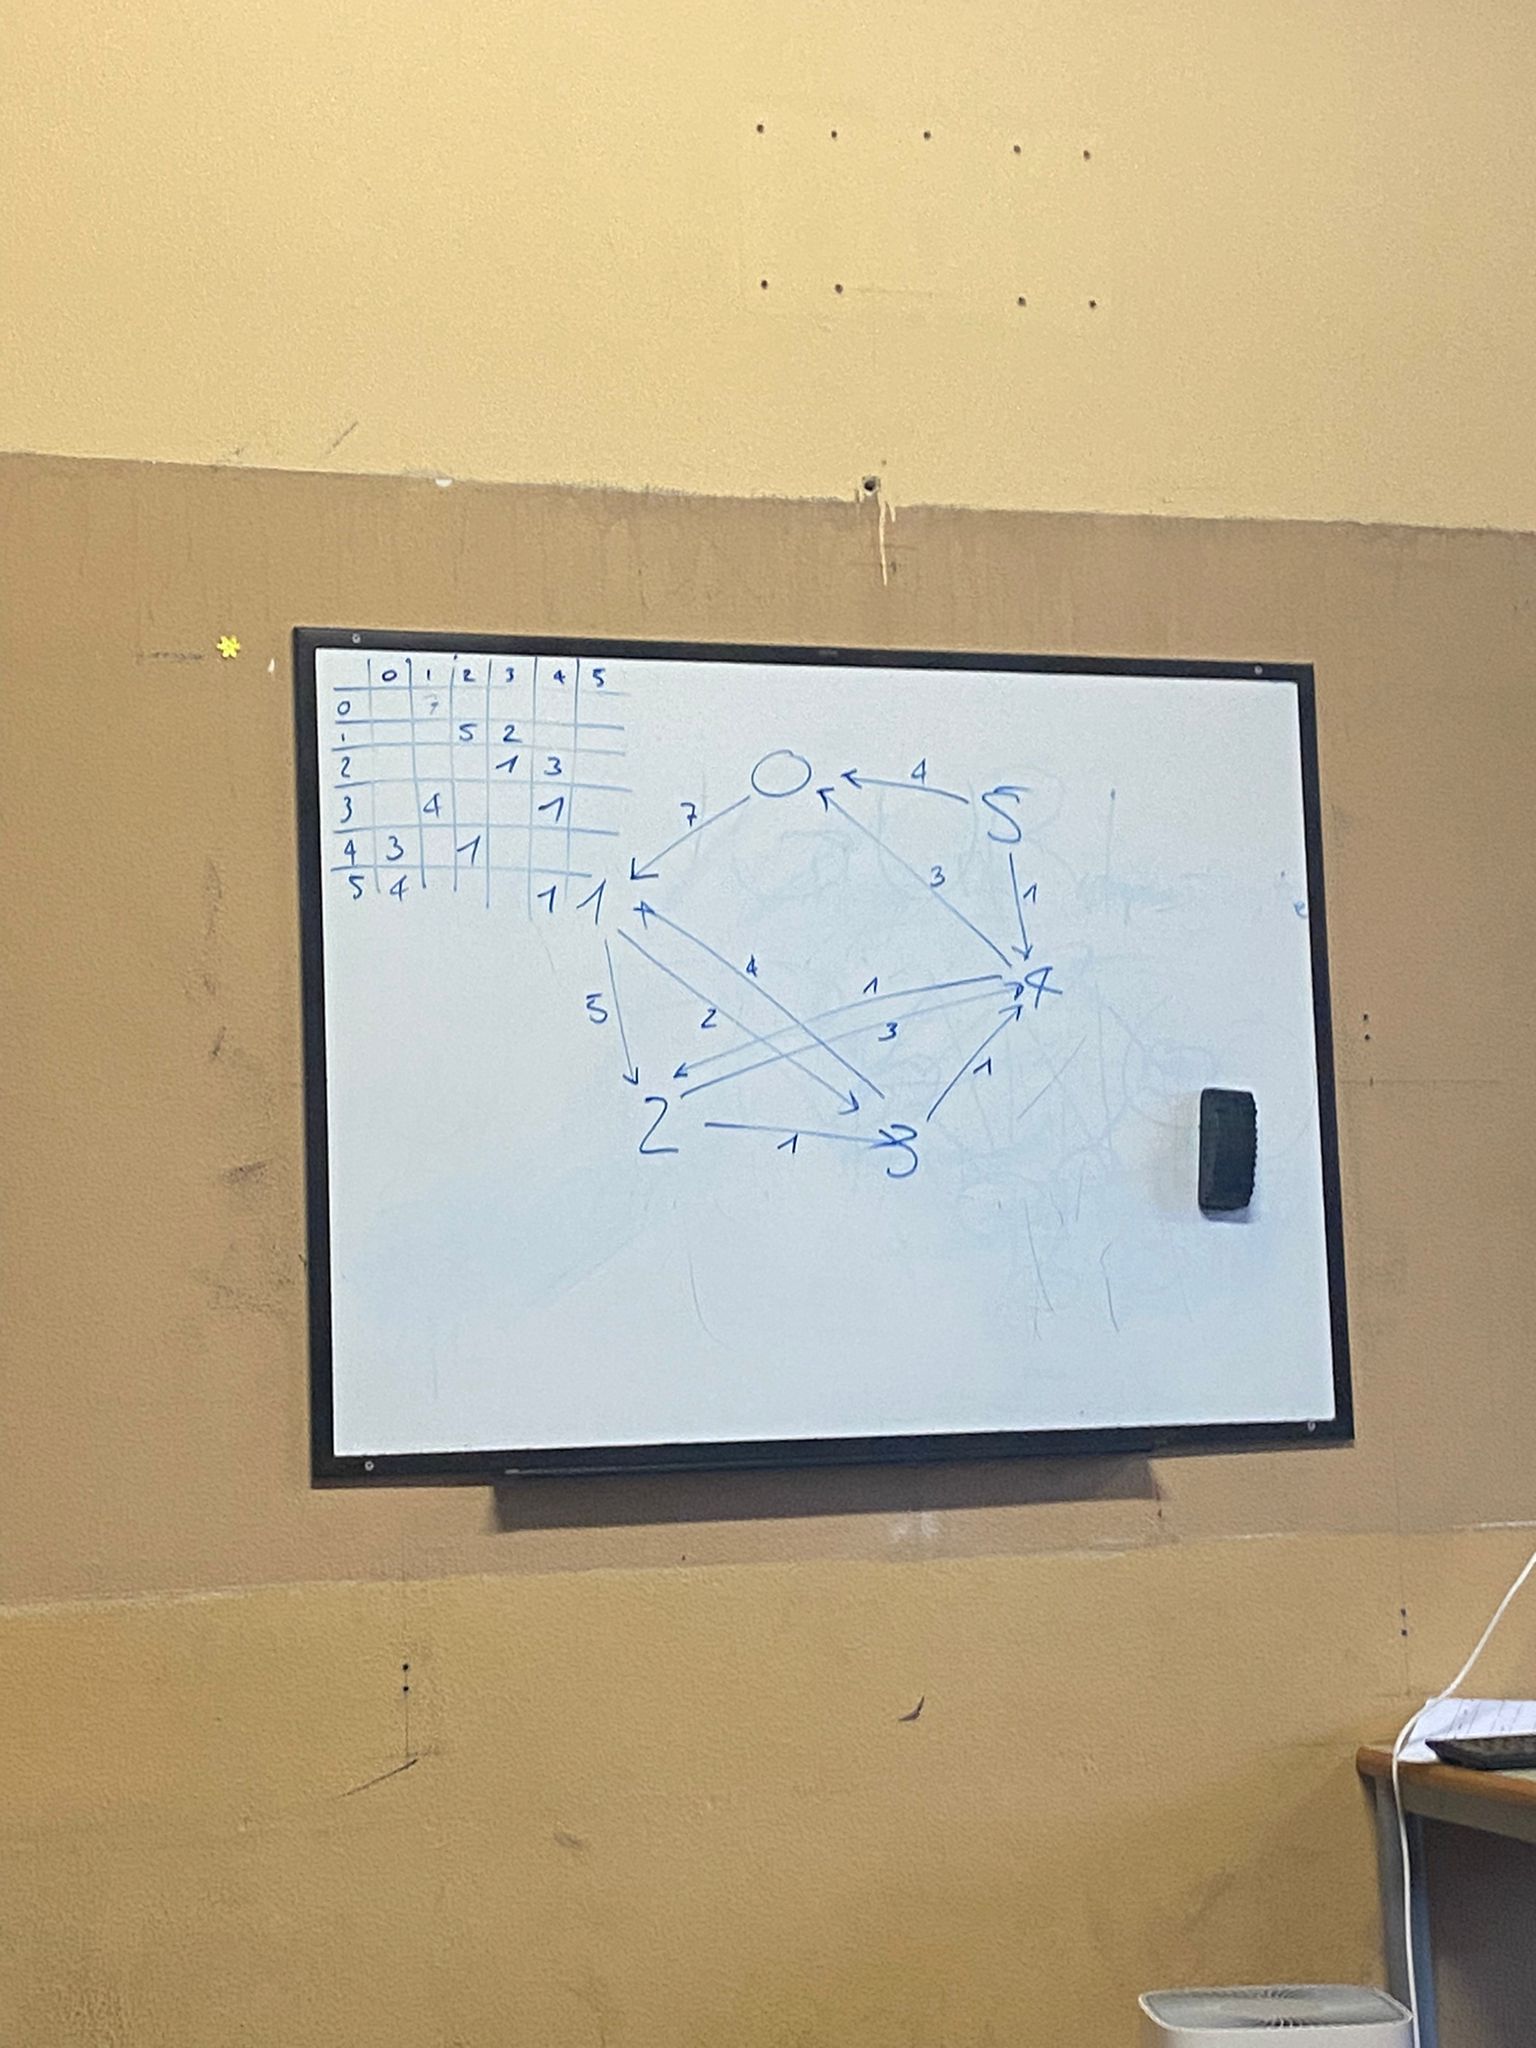 0 1 2 3 4 5
0 7
1 5 2
2 1 3
3 4 1
4 3 1
5 4 1
0
4
5
7
3
1
1
4
1
4
5
2
3
1
2
1
3